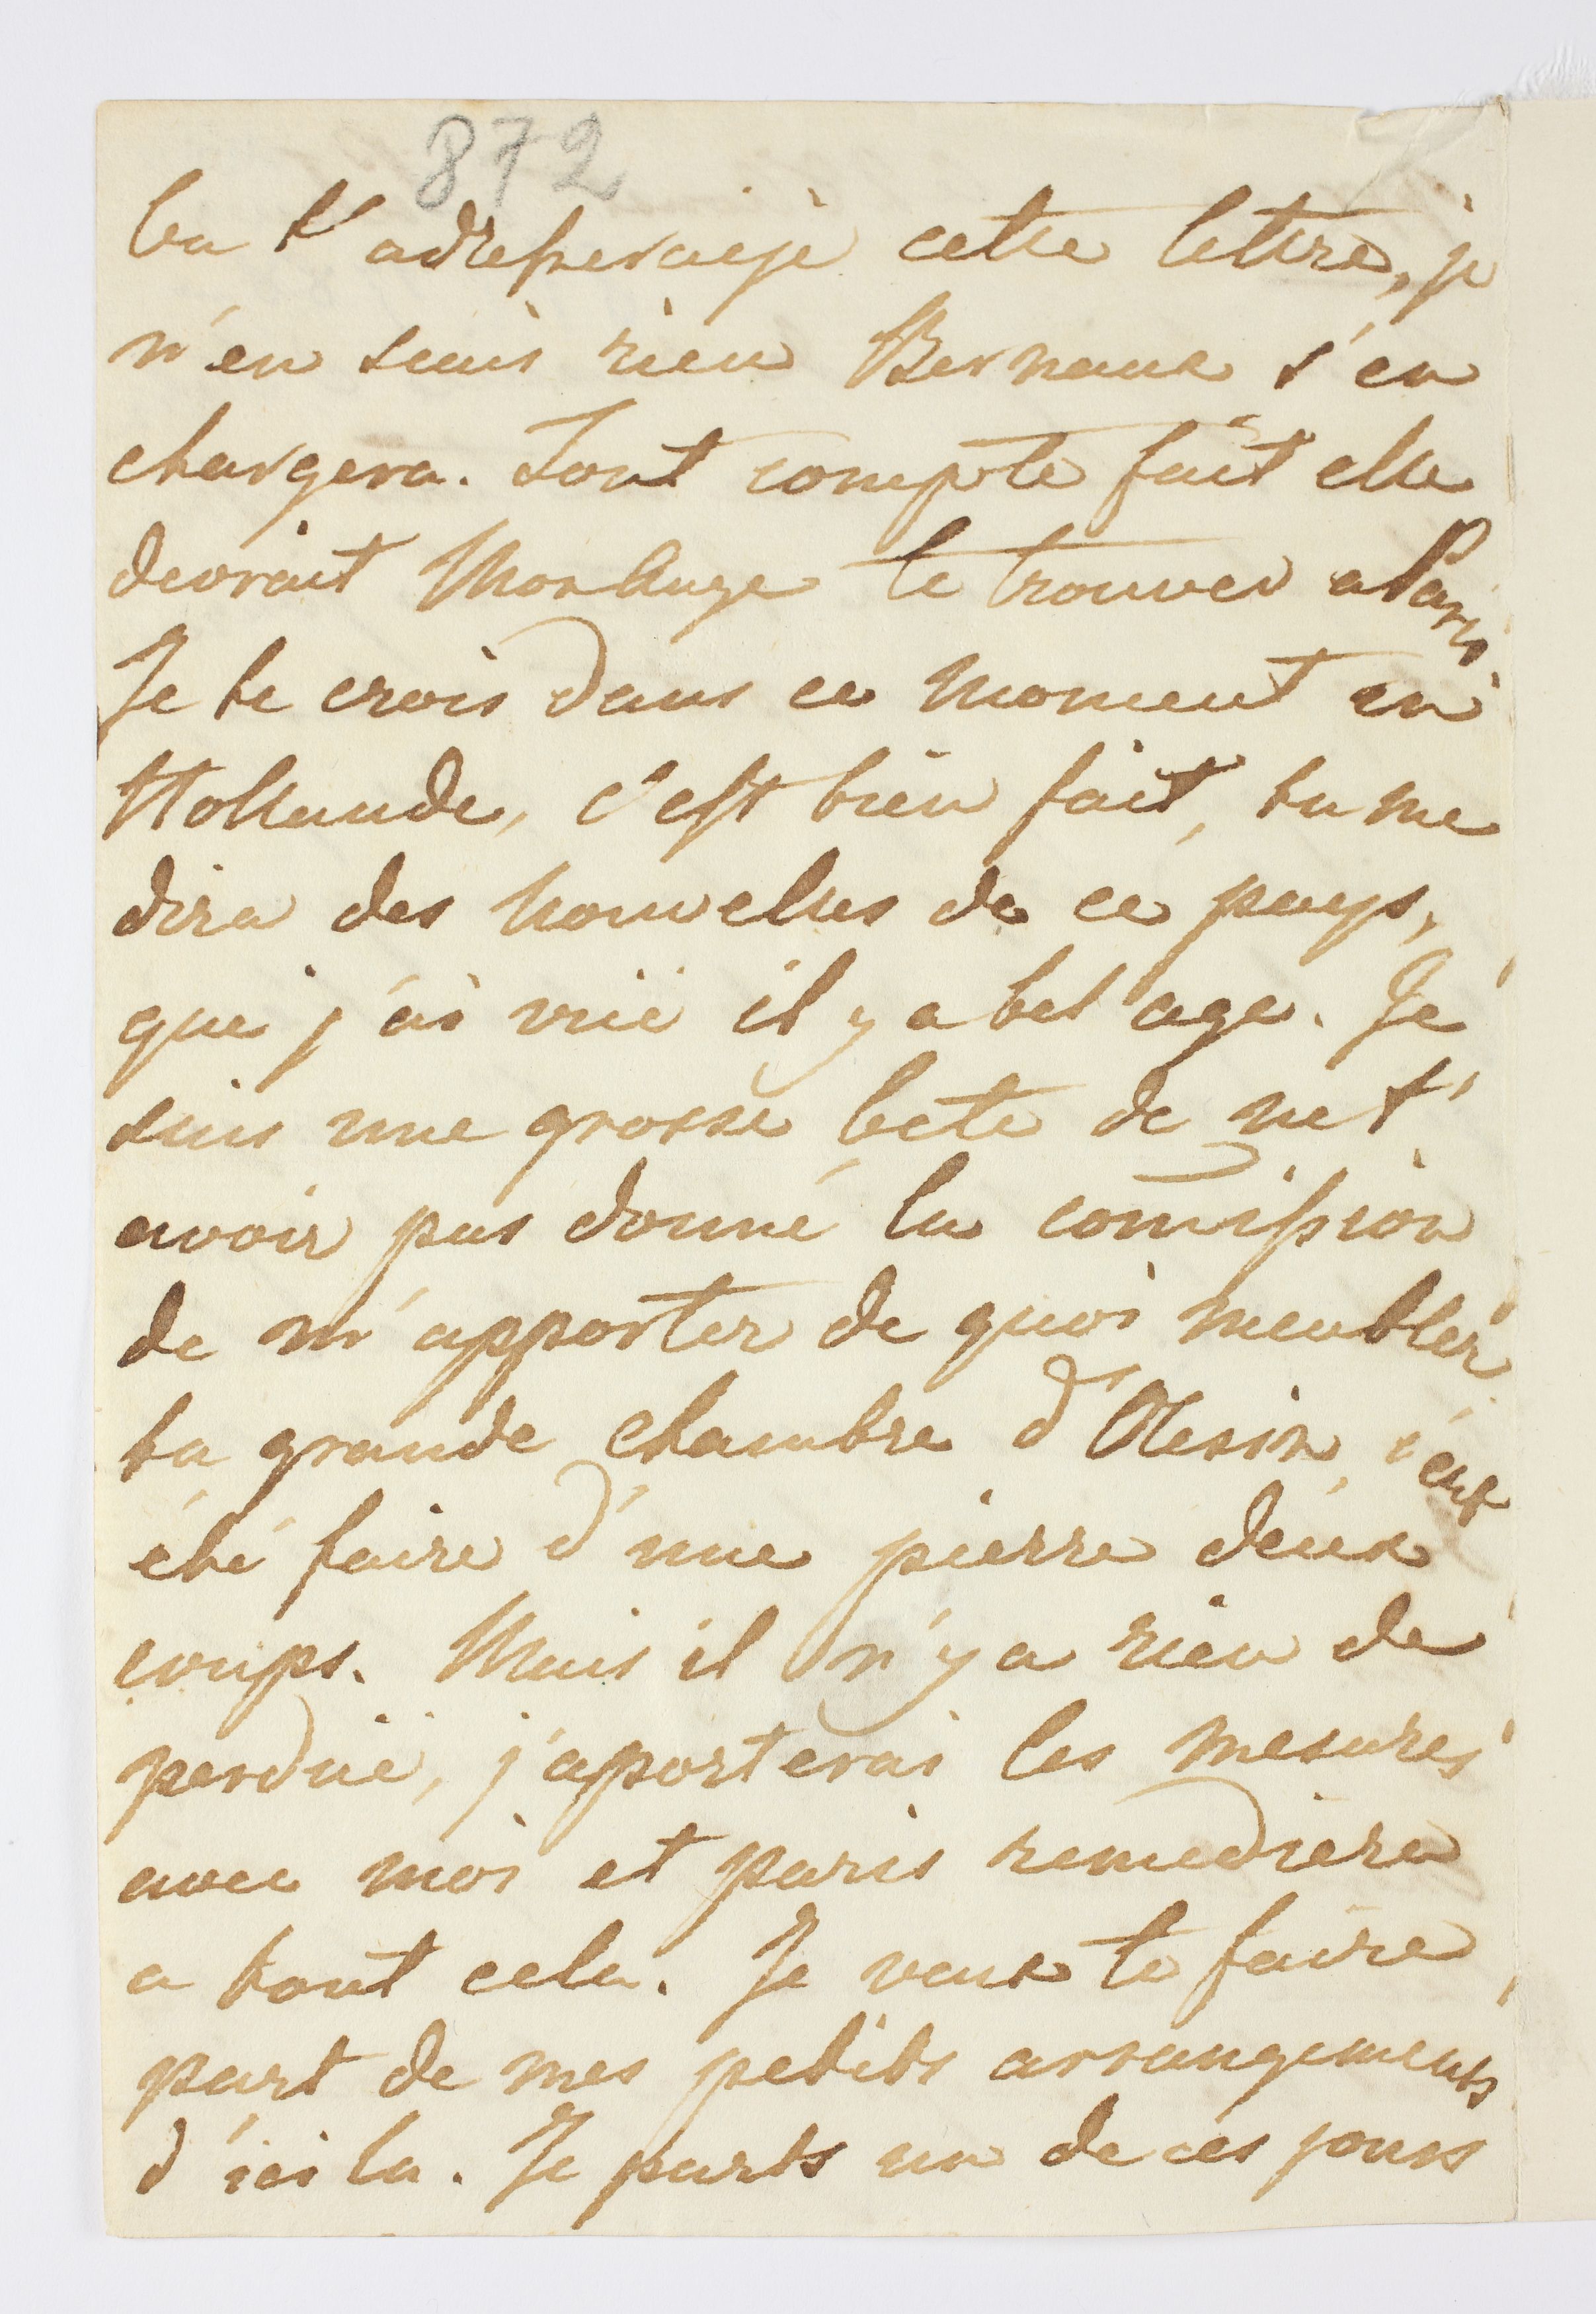 872
la t'adresseraije cette lettre, je
n'en suis rien Bernaux s'en
chargera. Tout compte fait elle
devrait Mon Ange te trouver a Paris.
Je te crois dans ce moment en
Hollande, c'est bien fait, tu me
dira des nouvelles de ce pays,
que j'ai vüe il y a bel age. Je
suis une grosse bete de ne t'
avoir pas donné la com̄ission
de m'apporter de quoi meubler
ta grande chambre d'Olesin, c'eut
été faire d'une pierre deux
coups. Mais il n'y a rien de
perdüe, j'aporterai les mesures
avec moi et paris remediera
a tout cela. Je veux te faire
part de mes petits arrangements
d'ici la. Je parts un de ces jours